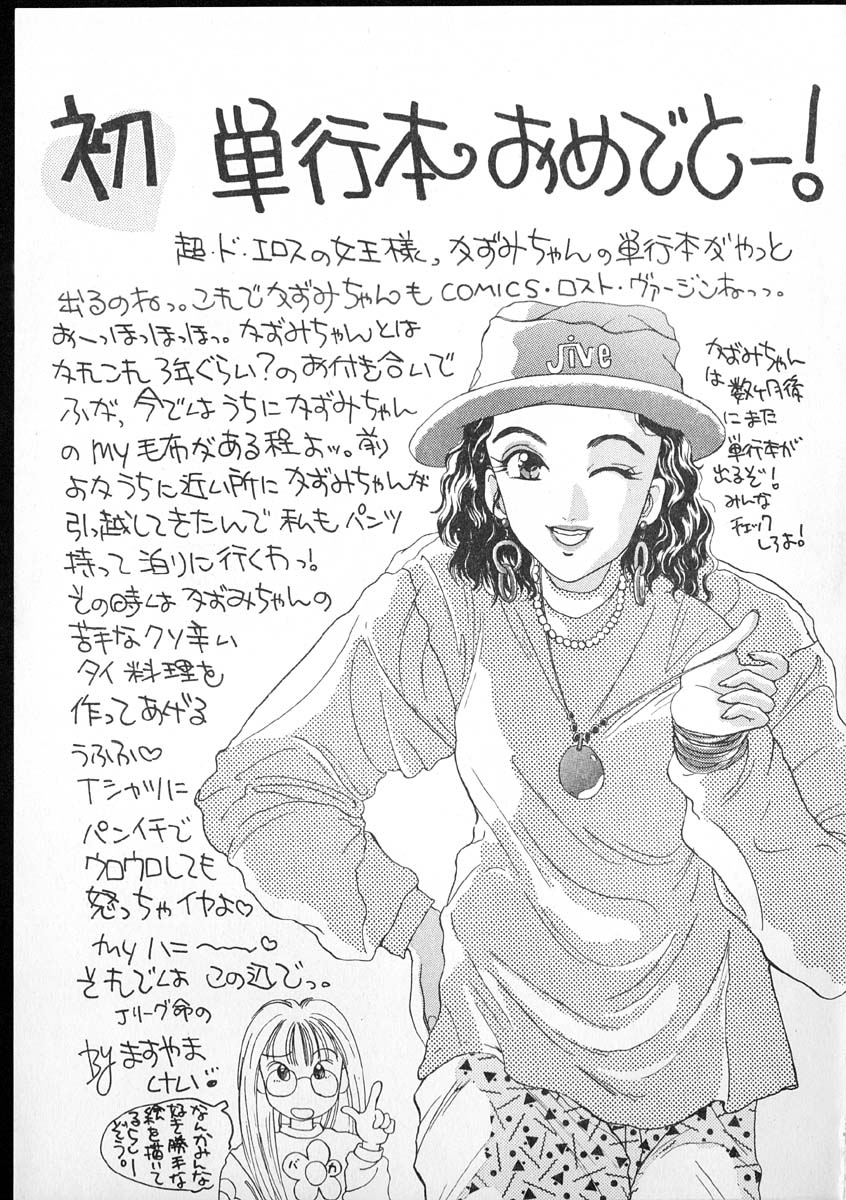 初 単行本おめでとー!
超・ド・エロスの女王様、かずみちゃんの単行本がやっと
出るのねっ。これでかずみちゃんもCOMICS・ロスト・ヴァージンねっっ。
おーっほっほっほっ。かずみちゃんとは
かれこれ3年ぐらい?のお付き合いで
ふが、今ではうちにかずみちゃん
のmy毛布がある程よッ。前
よかうちに近い所にかずみちゃんが
引っ越してきたんで私もパンツ
持って泊りに行くわっ!
その時はかずみちゃんの
苦手なクソ辛い
タイ料理を
作ってあげる
うふふ♡
Tシャツに
パンイチで
ウロウロしても
怒っちゃイヤよ♡
myハニ〜〜♡
それでは この辺でっ。
Jリーグ命の
By ますやま
けい
かずみちゃん
は数ヶ月後
にまた
単行本が
出るぞ!
みんな
チェック
しろよ!
jive
なんかみんな
好き勝手な
絵を描いて
るらしー
ぞぞう。
バカ